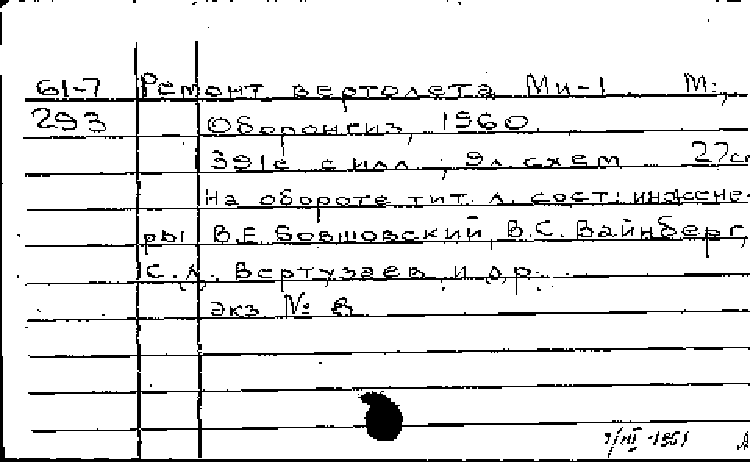 61-7 Ремонт вертолета Ми-1. М.,
293 Оборонгиз, 1960.
391с с илл., 9л. схем 27см
На обороте тит. л. сост: инжене-
ры В.Е. Бовшовский, В.С. Вайнберг,
С.Л. Вертузаев и др.
экз № В